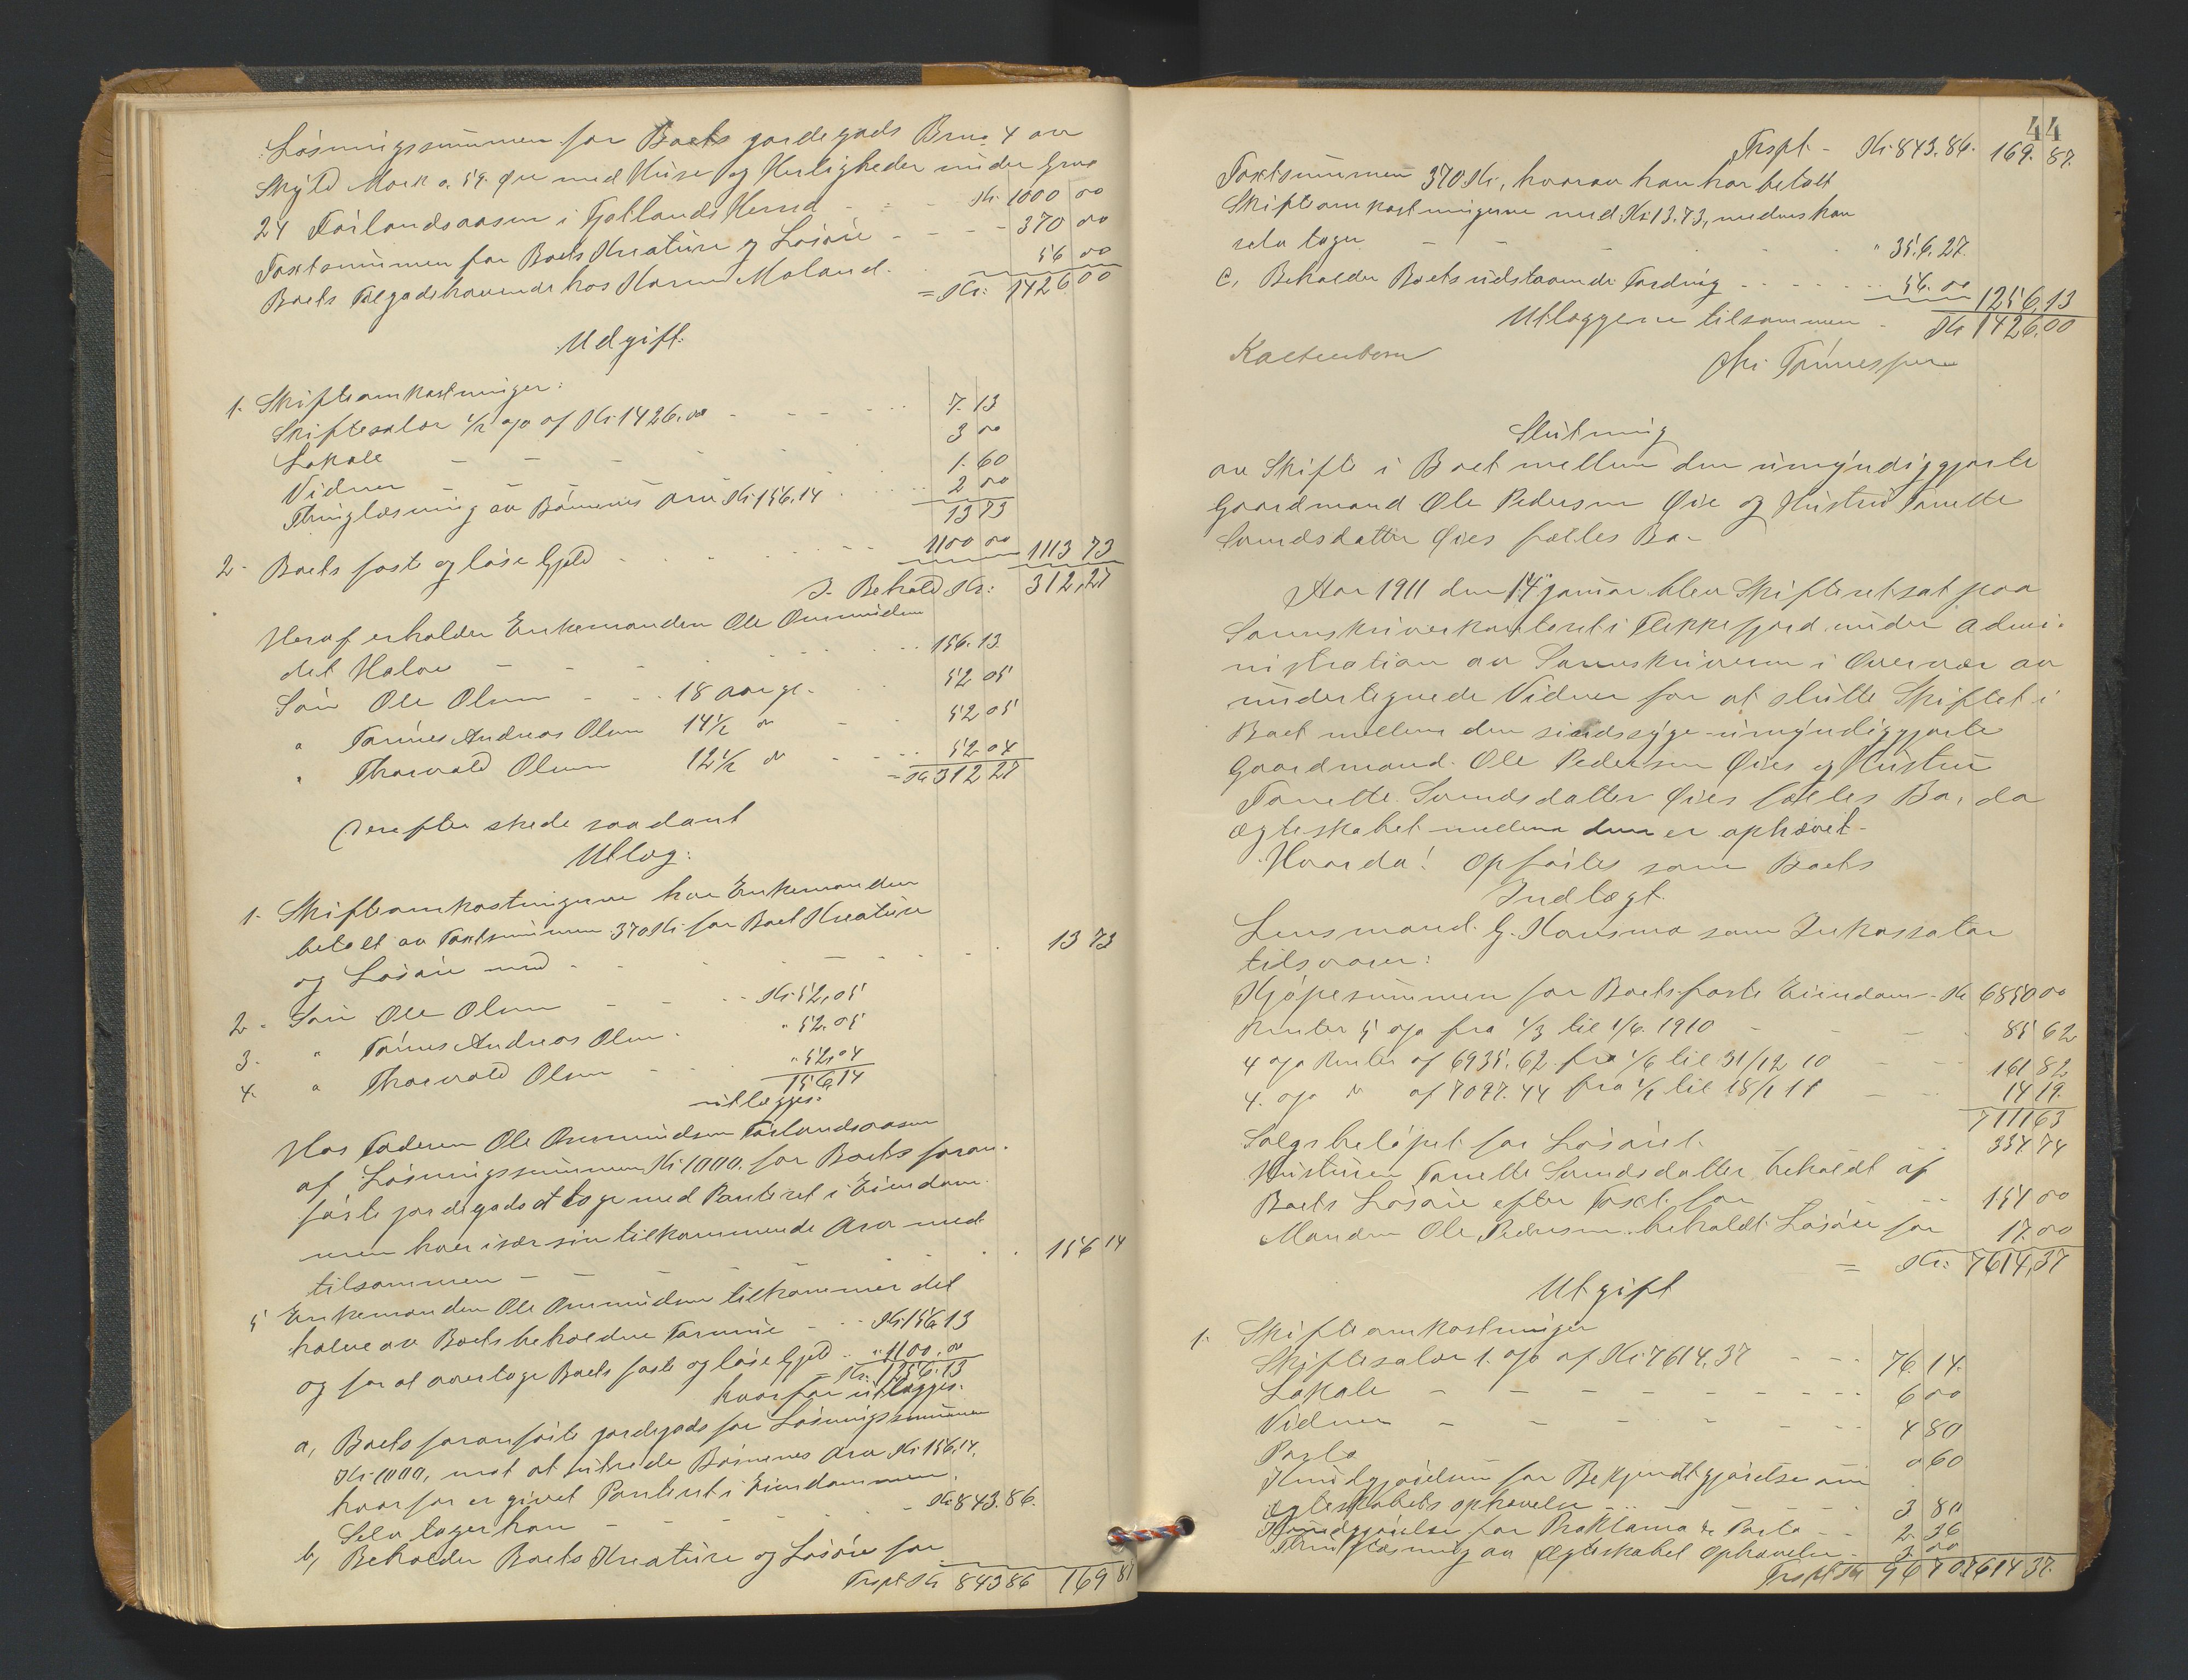 Løsningssummen for Boets jordegods Brno 4 av
Skyld Mark o. 59. Øre med Huse og Herligheder under Gno
24 Førlandsaasen i Fjotlands Herred - - - Kr. 1000 00
Taxtsummen for Boets Kreature og Løsøre - - - - 370 00
Boets Tilgodehavende hos Karen Moland. 56 00
= Kr: 1426 00
Udgift:
1. Skifteomkostninger:
Skiftesalær 1/2 o/o af Kr 1426.00 - - - - 7.13
Lokale - - - - 3 00
Vidner - - - - 1.60
Thinglæsning av Børnenes Arv Kr 156.14 . . . 2 00
13 73
2. Boets faste og løse Gjeld - - - - 1100 00 1113 73
I Behold Kr: 312,27
Heraf erholder Enkemanden Ole Osmundsen
det Halve - - - - 156.13
Søn Ole Olsen - - 18 aar gl. - 52 05
" Tønnes Andreas Olsen 14 1/2 " - 52 05
" Thorvald Olsen 12 1/2 " - - 52 04
= Kr 312 27
Derefter skede saadant
Utlæg:
1. Skifteomkostningerne har Enkemanden
betalt av Taxtsummen 370 Kr for Boet Kreature
og Løsøre med - - - - 13 73
2. Søn Ole Olsen - - - Kr. 52,05
3. " Tønnes Andreas Olsen - " 52.05
4. " Thorvald Olsen - - " 52,04
156,14
utlægges:
Hos Faderen Ole Osmundsen Førlandsaasen
af Løsningssummen Kr. 1000. for Boets foran-
førte jordegods at tage med Panteret i Eiendom-
men hver især sin tilkommende Arv med
tilsammen - - - - 156 14
5 Enkemanden Ole Osmundsen tilkommer det
halve av Boets beholdne Formue - - Kr 156 13
og for at overtage Boets faste og løse Gjeld - " 1100.00
Kr. 1256.13
hvorfor utlægges:
a, Boets foranførte jordegods for Løsningssummen
Kr. 1000, mot at utrede Børnenes Arv Kr 156.14,
hvorfor er givet Panteret i Eiendommen.
Selv tager han - - - - Kr. 843.86.
b, Beholder Boets Kreature og Løsøre for
Trspt Kr 843 86 169 87
44
Trspt - Kr. 843.86. 169. 87.
Taxtsummen 370 Kr, hvorav han har betalt
Skifteomkostningerne med Kr. 13.73, medens han
selv tager - - - " 356.27.
c, Beholder Boets udstaaende Fordring - - - - 56.00 1256,13
Utlæggene tilsammen - Kr 1426.00
Slutning
av Skifte i Boet mellem den umyndiggjorte
Gaardmand Ole Pedersen Øie og Hustru Tonette
Svendsdatter Øies fælles Bo -
Aar 1911 den 14 januar blev Skifteret sat paa
Sorenskriverkontoret i Flekkefjord under Admi-
nistration av Sorenskriveren i Overvær av
undertegnede Vidner for at slutte Skiftet i
Boet mellem den sindssyge umyndiggjorte
Gaardmand Ole Pedersen Øies og Hustru
Tonette Svendsdatter Øies fælles Bo, da
ægteskabet mellem dem er ophævet -
Hvorda! Opføites som Boets
Indtægt.
Lensmand G. Hansmo som Inkassator
tilsvarer:
Kjøpesummen for Boets faste Eiendom - Kr 6850 00
Renter 5 o/o fra 1/3 til 1/6. 1910 - - - 85 62
4 o/o Renter af 6935.62 fra 1/6 til 31/12 10 - - 161 82
4. o/o " af 7097.44 fra 1/1 til 18/1 11 - - 14 19.
7111 63
Salgsbeløpet for Løsøret - - 334 74
Hustruen Tonette Svendsdatter beholdt af
Boets Løsøre efter Taxt for - - 151 00
Manden Ole Pedersen beholdt Løsøre for 17.00
= Kr: 7614,37
Utgift
1. Skifteomkostninger
Skiftesalær 1. o/o af Kr 7614,37 - - - 76.14.
Lokale - - - - 6 00
Vidner - - - - 4 80
Porto 0 60
Kundgjørelsen for Bekjendtgjørelse om
ægteskabets ophævelse - - - - 3 80
Kundgjørelse for Proklama & Porto - - 2 36
Thinglæsning av Ægteskabet Ophævelse - 3. 00
Trspt Kr 96 70 7614 37.